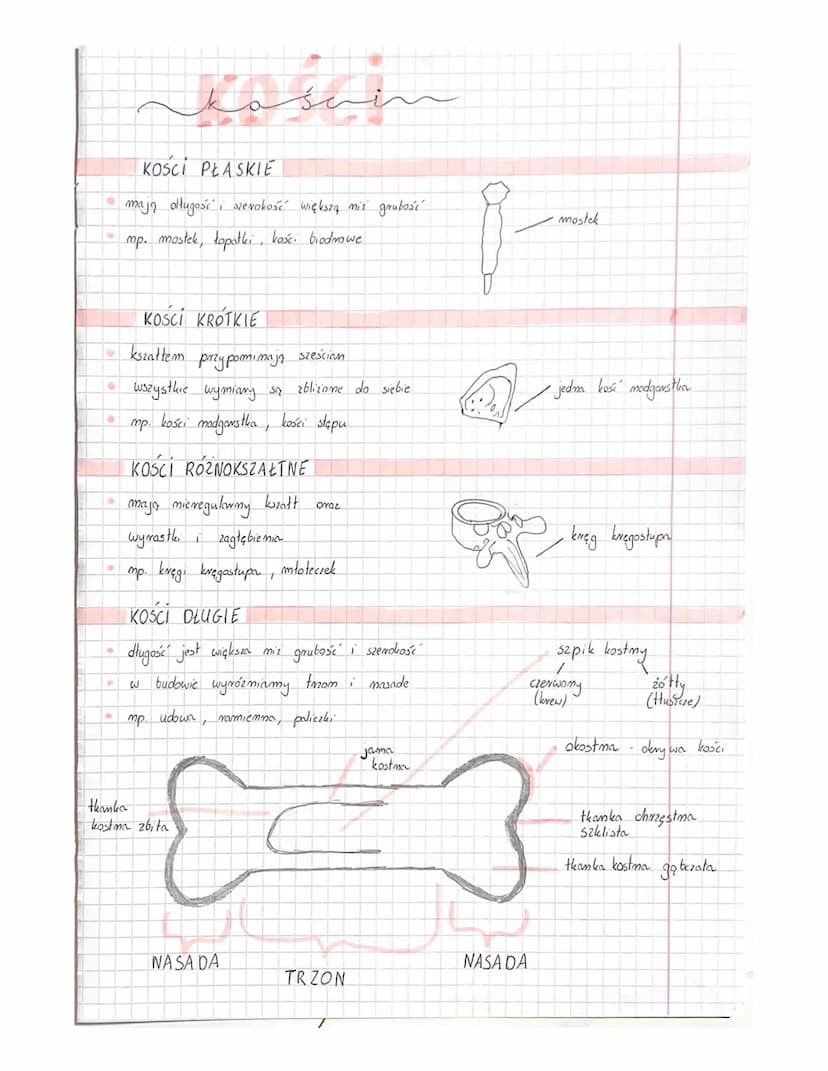 kości
KOŚCI PŁASKIE
mają długość i szerokość większą niż grubość
np. mostek, łopatki, kości biodrowe
mostek
KOŚCI KRÓTKIE
kształtem przypominają sześcian
wszystkie wymiary są zbliżone do siebie
jedna kość nadgarstka
np. kości nadgarstka, kości stępu
KOŚCI RÓŻNOKSZAŁTNE
mają nieregularny kształt oraz
wyrostki i zagłębienia
kręg kręgosłupa
np. kręgi kręgosłupa, młoteczek
KOŚCI DŁUGIE
długość jest większa niż grubość i szerokość
szpik kostny
w budowie wyróżniamy trzon i nasade
czerwony żółty
(krew) (tłuszcze)
np. udowa, ramienna, paliczki
jama
kostna
okostna - okrywa kości
tkanka
kostna zbita
tkanka chrzęstna
szklista
tkanka kostna gąbczata
NASADA
TRZON
NASADA